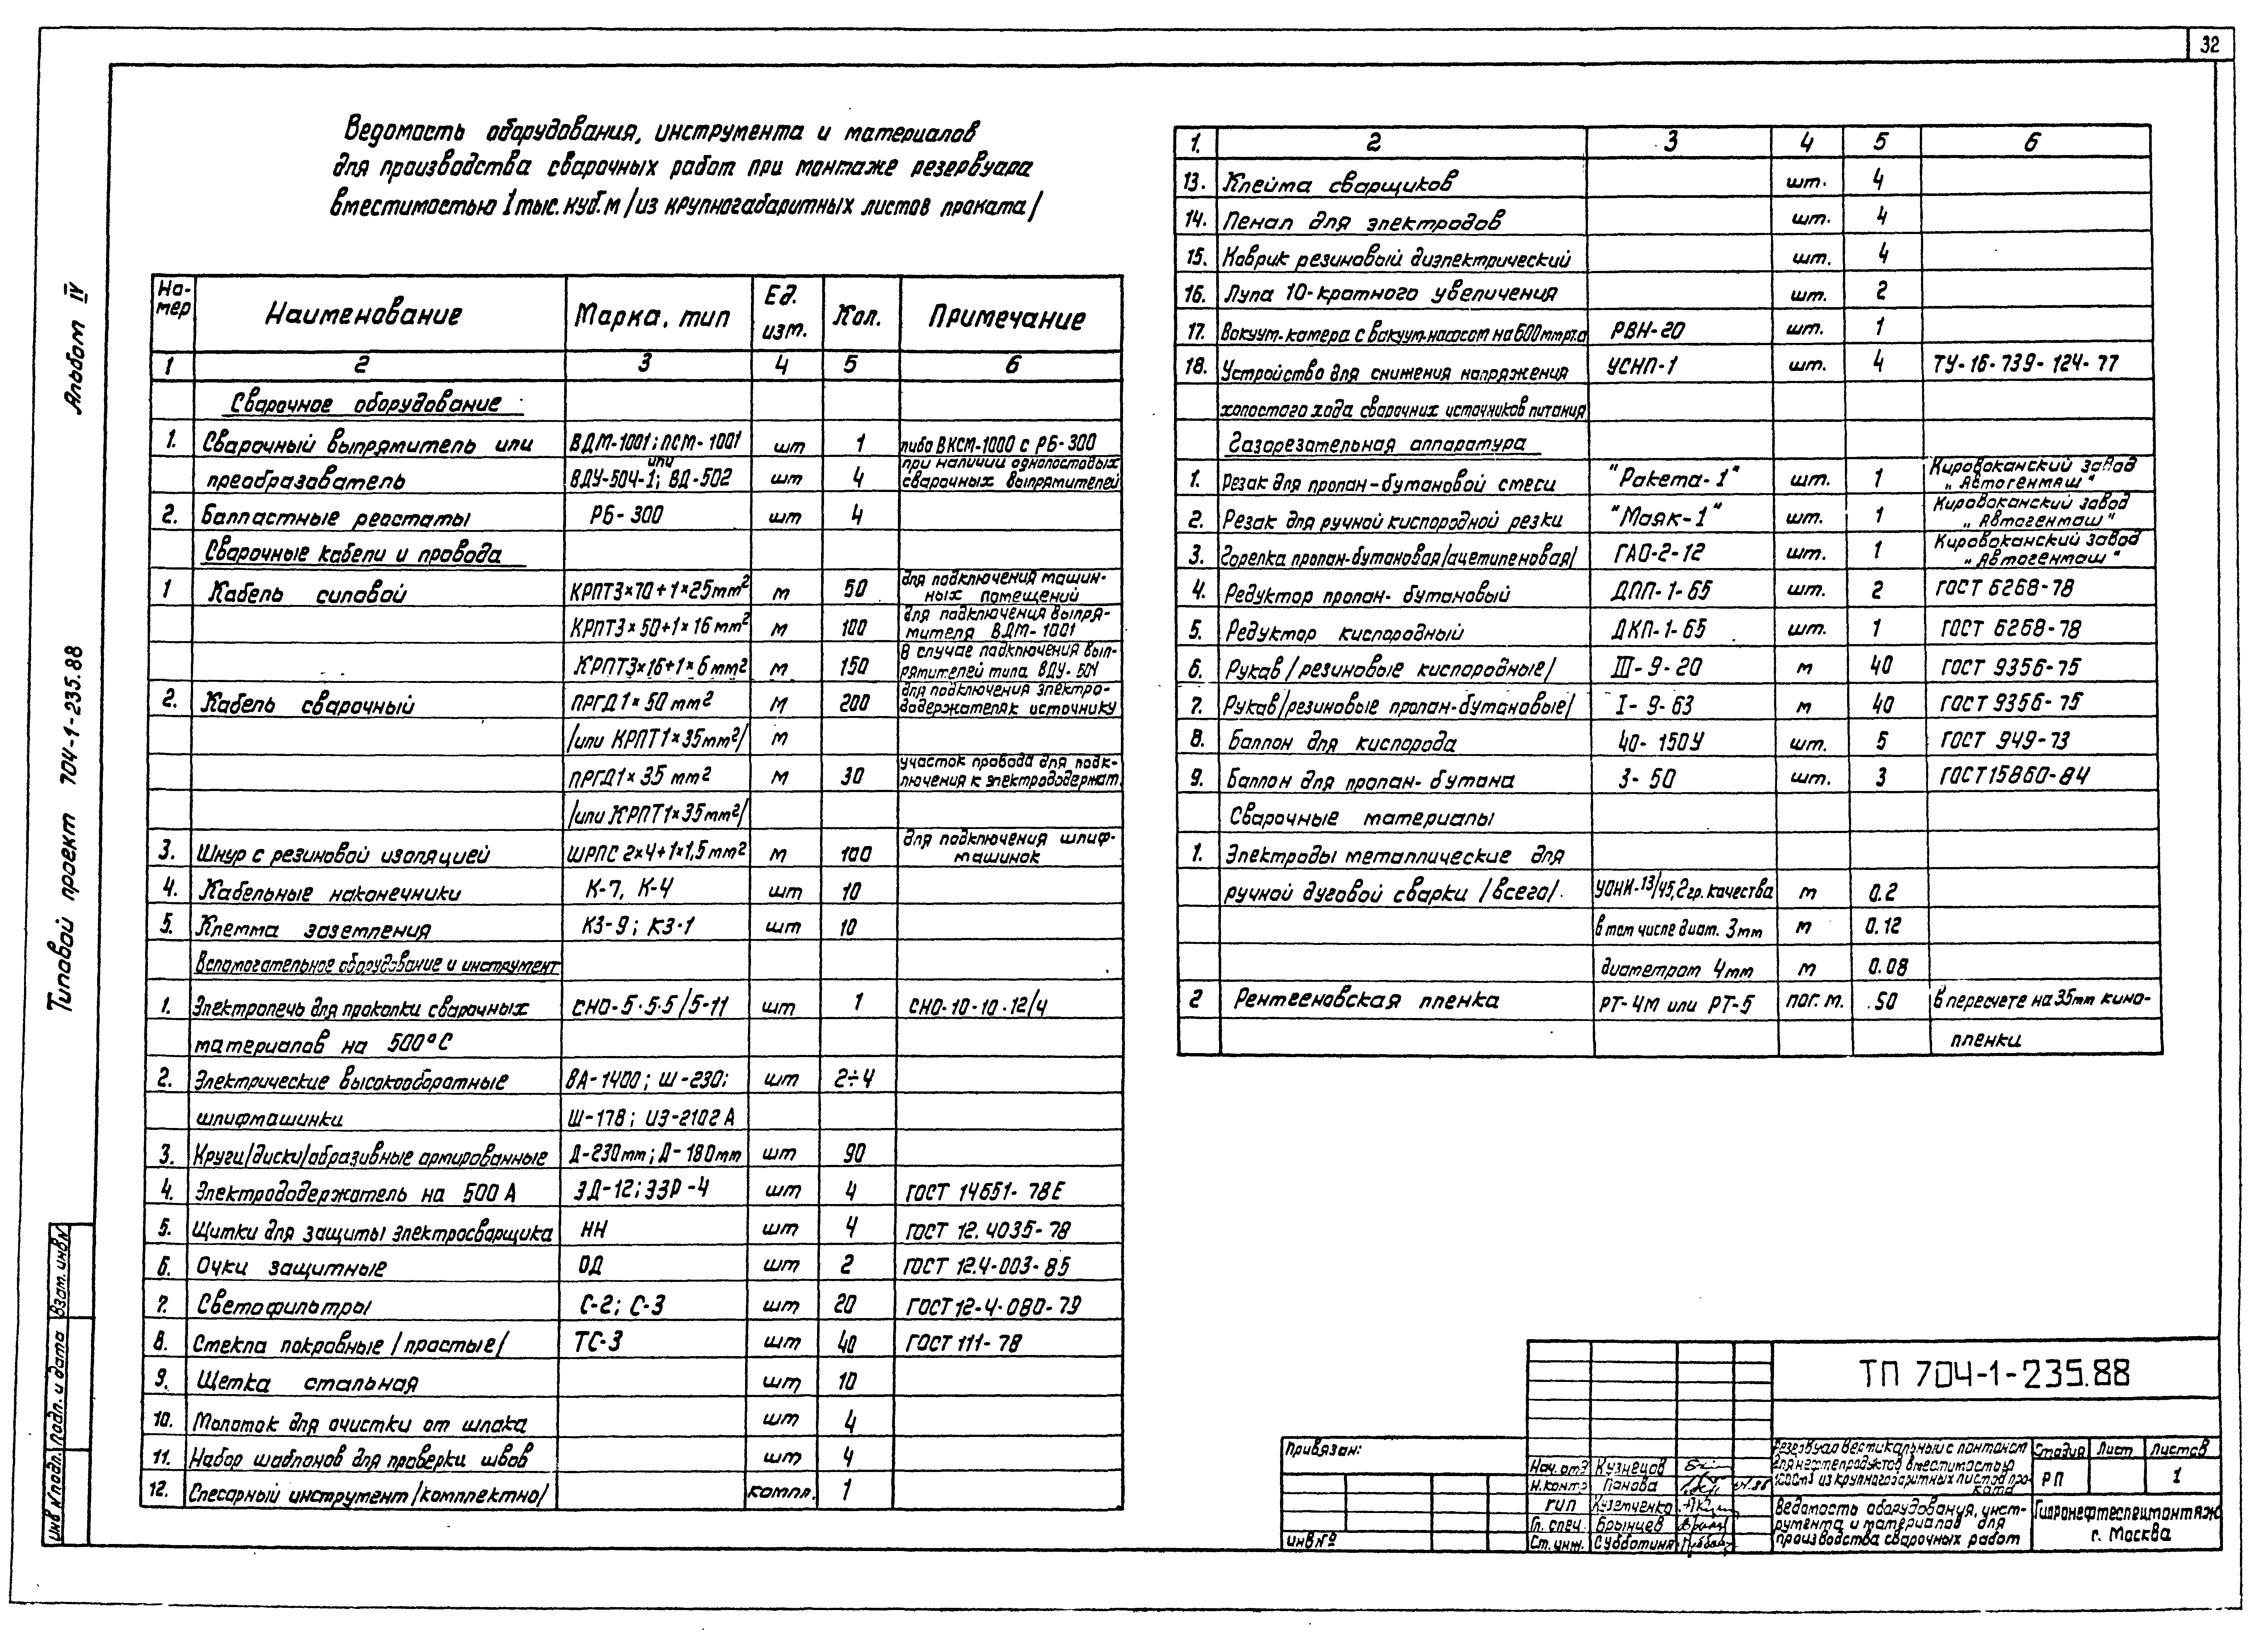 32
Ведомость оборудования, инструмента и материалов
для производства сварочных работ при монтаже резервуара
вместимостью 1 тыс. куб. м /из крупногабаритных листов проката/
Альбом IV
Типовой проект 704-1-235.88
Но-мер Наименование Марка, тип Ед. изм. Кол. Примечание
1 2 3 4 5 6
Сварочное оборудование
1. Сварочный выпрямитель или ВДМ-1001; ПСМ-1001 шт 1 либо ВКСМ-1000 с РБ-300
или
преобразователь ВДУ-504-1; ВД-502 шт 4 при наличии однопостовых сварочных выпрямителей
2. Балластные реостаты РБ-300 шт 4
Сварочные кабели и провода
1 Кабель силовой КРПТ3×70+1×25мм² м 50 для подключения машин-ных помещений
КРПТ3×50+1×16мм² м 100 для подключения выпря-мителя ВДМ-1001
КРПТ3×16+1×6мм² м 150 В случае подключения вып-рямителей типа ВДУ-504
2. Кабель сварочный ПРГД1×50мм² м 200 для подключения электро-додержателя к источнику
/или КРПТ1×35мм²/ м
ПРГД1×35мм² м 30 участок провода для подк-лючения к электрододержат.
/или КРПТ1×35мм²/
3. Шнур с резиновой изоляцией ШРПС 2×4+1×1,5мм² м 100 для подключения шлиф-машинок
4. Кабельные наконечники К-7, К-4 шт 10
5. Клемма заземления КЗ-9; КЗ-1 шт 10
Вспомогательное оборудование и инструмент
1. Электропечь для прокалки сварочных СНО-5·5·5/5-11 шт 1 СНО-10-10·12/4
материалов на 500°С
2. Электрические высокооборотные ВА-1400; Ш-230; шт 2÷4
шлифмашинки Ш-178; ИЭ-2102А
3. Круги/диски/абразивные армированные Д-230мм; Д-180мм шт 90
4. Электрододержатель на 500 А ЭД-12; ЭЗР-4 шт 4 ГОСТ 14651-78Е
5. Щитки для защиты электросварщика НН шт 4 ГОСТ 12.4035-78
6. Очки защитные ОД шт 2 ГОСТ 12.4-003-85
7. Светофильтры С-2; С-3 шт 20 ГОСТ 12-4-080-79
8. Стекла покровные /простые/ ТС-3 шт 40 ГОСТ 111-78
9. Щетка стальная шт 10
10. Молоток для очистки от шлака шт 4
11. Набор шаблонов для проверки швов шт 4
12. Слесарный инструмент /комплектно/ компл. 1
1. 2 3 4 5 6
13. Клейма сварщиков шт. 4
14. Пенал для электродов шт. 4
15. Коврик резиновый диэлектрический шт. 4
16. Лупа 10-кратного увеличения шт. 2
17. Вакуум-камера с вакуум-насосом на 600мм рт.с РВН-20 шт. 1
18. Устройство для снижения напряжения УСНП-1 шт. 4 ТУ-16-739-124-77
холостого хода сварочних источников питания
Газорезательная аппаратура
1. Резак для пропан-бутановой смеси "Ракета-1" шт. 1 Кироваканский завод „Автогенмаш"
2. Резак для ручной кислородной резки "Маяк-1" шт. 1 Кироваканский завод „Автогенмаш"
3. Горелка пропан-бутановая/ацетиленовая/ ГАО-2-12 шт. 1 Кироваканский завод „Автогенмаш"
4. Редуктор пропан-бутановый ДПП-1-65 шт. 2 ГОСТ 6268-78
5. Редуктор кислородный ДКП-1-65 шт. 1 ГОСТ 6268-78
6. Рукав /резиновые кислородные/ III-9-20 м 40 ГОСТ 9356-75
7. Рукав/резиновые пропан-бутановые/ I-9-63 м 40 ГОСТ 9356-75
8. Баллон для кислорода 40-150У шт. 5 ГОСТ 949-73
9. Баллон для пропан-бутана 3-50 шт. 3 ГОСТ 15860-84
Сварочные материалы
1. Электроды металлические для
ручной дуговой сварки /всего/. УОНИ-13/45, 2гр. качества т 0.2
в том числе диам. 3мм т 0.12
диаметром 4мм т 0.08
2 Рентгеновская пленка РТ-4М или РТ-5 пог. м. 50 в пересчете на 35мм кино-
пленки
ТП 704-1-235.88
Привязан:
Инв №
Нач. отд Кузнецов
Н. контр Панова
ГИП Куземченко
Гл. спец. Брынцев
Ст. инж. Субботина
Резервуар вертикальный с понтоном
для нефтепродуктов вместимостью
1000м3 из крупногабаритных листов про-
ката
Стадия Лист Листов
РП 1
Ведомость оборудования, инст-
румента и материалов для
производства сварочных работ
Гипронефтеспецмонтаж
г. Москва
Инв № подл. Подп. и дата Взам. инв №